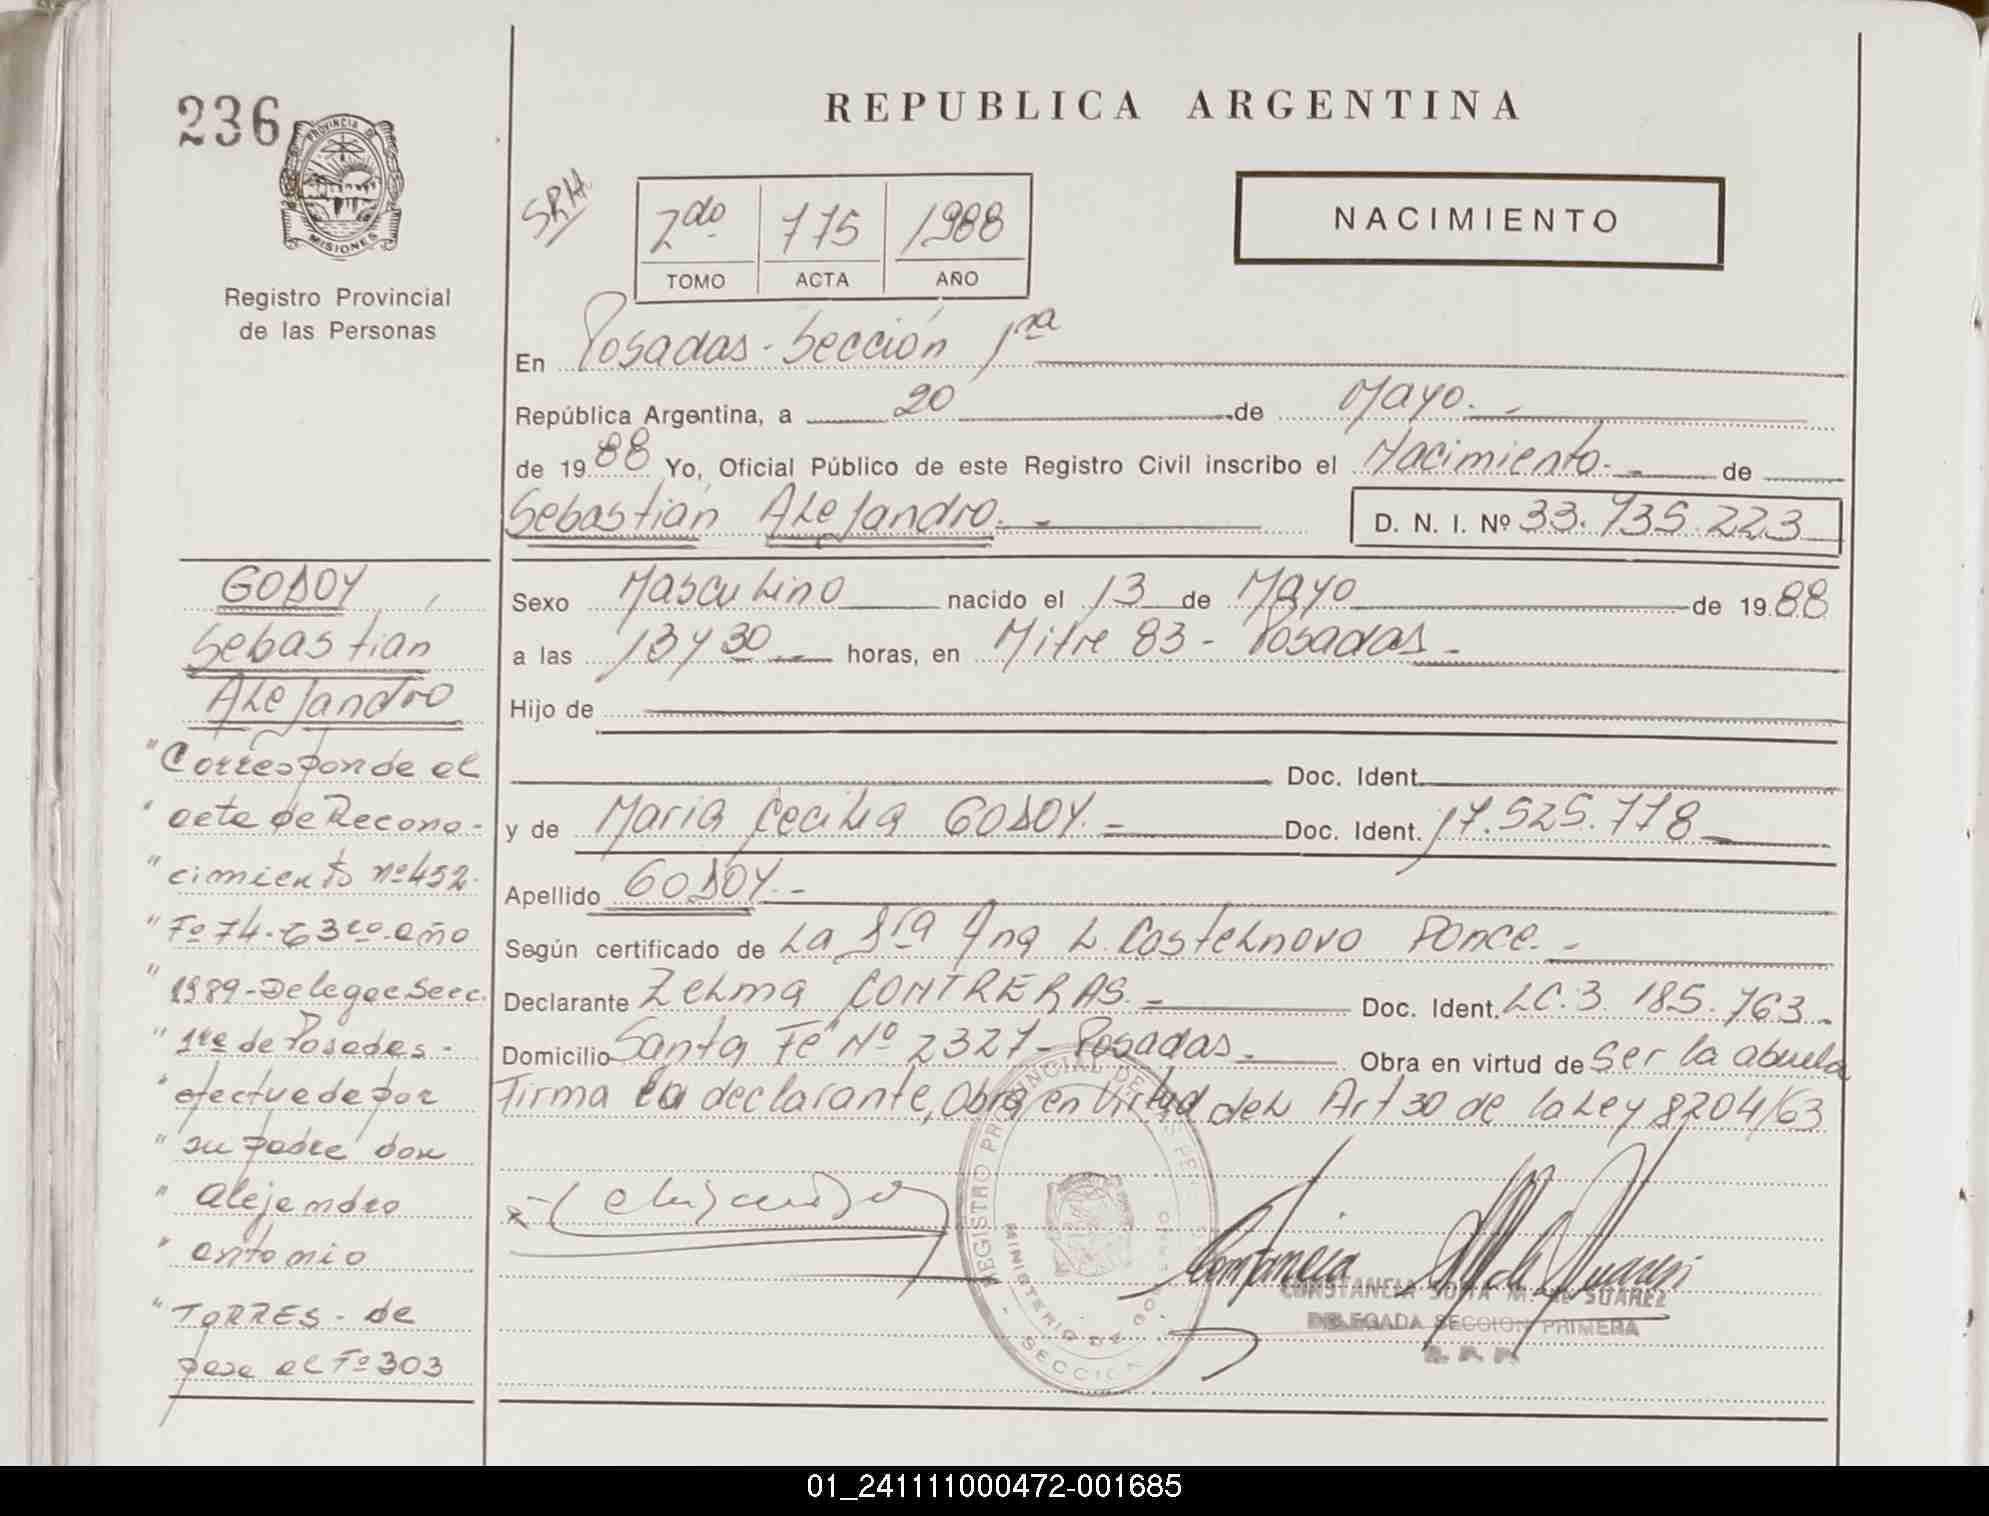 236
PROVINCIA DE
MISIONES
Registro Provincial
de las Personas
REPUBLICA ARGENTINA
SRH
2do 775 1988
TOMO ACTA AÑO
NACIMIENTO
En Posadas - Sección 1ra
República Argentina, a 20 de Mayo. -
de 1988 Yo, Oficial Público de este Registro Civil inscribo el Nacimiento. - de
Sebastián Alejandro. -
D. N. I. Nº 33.935.223
Sexo Masculino nacido el 13 de Mayo de 1988
a las 13 y 30 horas, en Mitre 83 - Posadas -
Hijo de
Doc. Ident.
y de María Cecilia GODOY. - Doc. Ident. 17.525.778
Apellido GODOY. -
Según certificado de La Sra Ana L. Castelnovo Ponce. -
Declarante Zelma CONTRERAS. - Doc. Ident. LC. 3.185.763 -
Domicilio Santa Fé Nº 2327 - Posadas. - Obra en virtud de Ser la abuela
Firma la declarante, Obra en virtud del Art 30 de la Ley 8204/63
GODOY,
Sebastián
Alejandro
"Corresponde el
"acta de Recono-
"cimiento nº 452-
"Fº 74 - T 3ro - año
"1989 - Delegac Secc.
"1ra de Posadas -
"efectuada por
"su padre don
"Alejandro
"Antonio
"TORRES - de
pasa al Fº 303
REGISTRO PROVINCIAL DE LAS PER
MINISTERIO DE GO
SECCION
CONSTANCIA SOFIA M. de SUAREZ
DELEGADA SECCION PRIMERA
R. P. P.
01_241111000472-001685